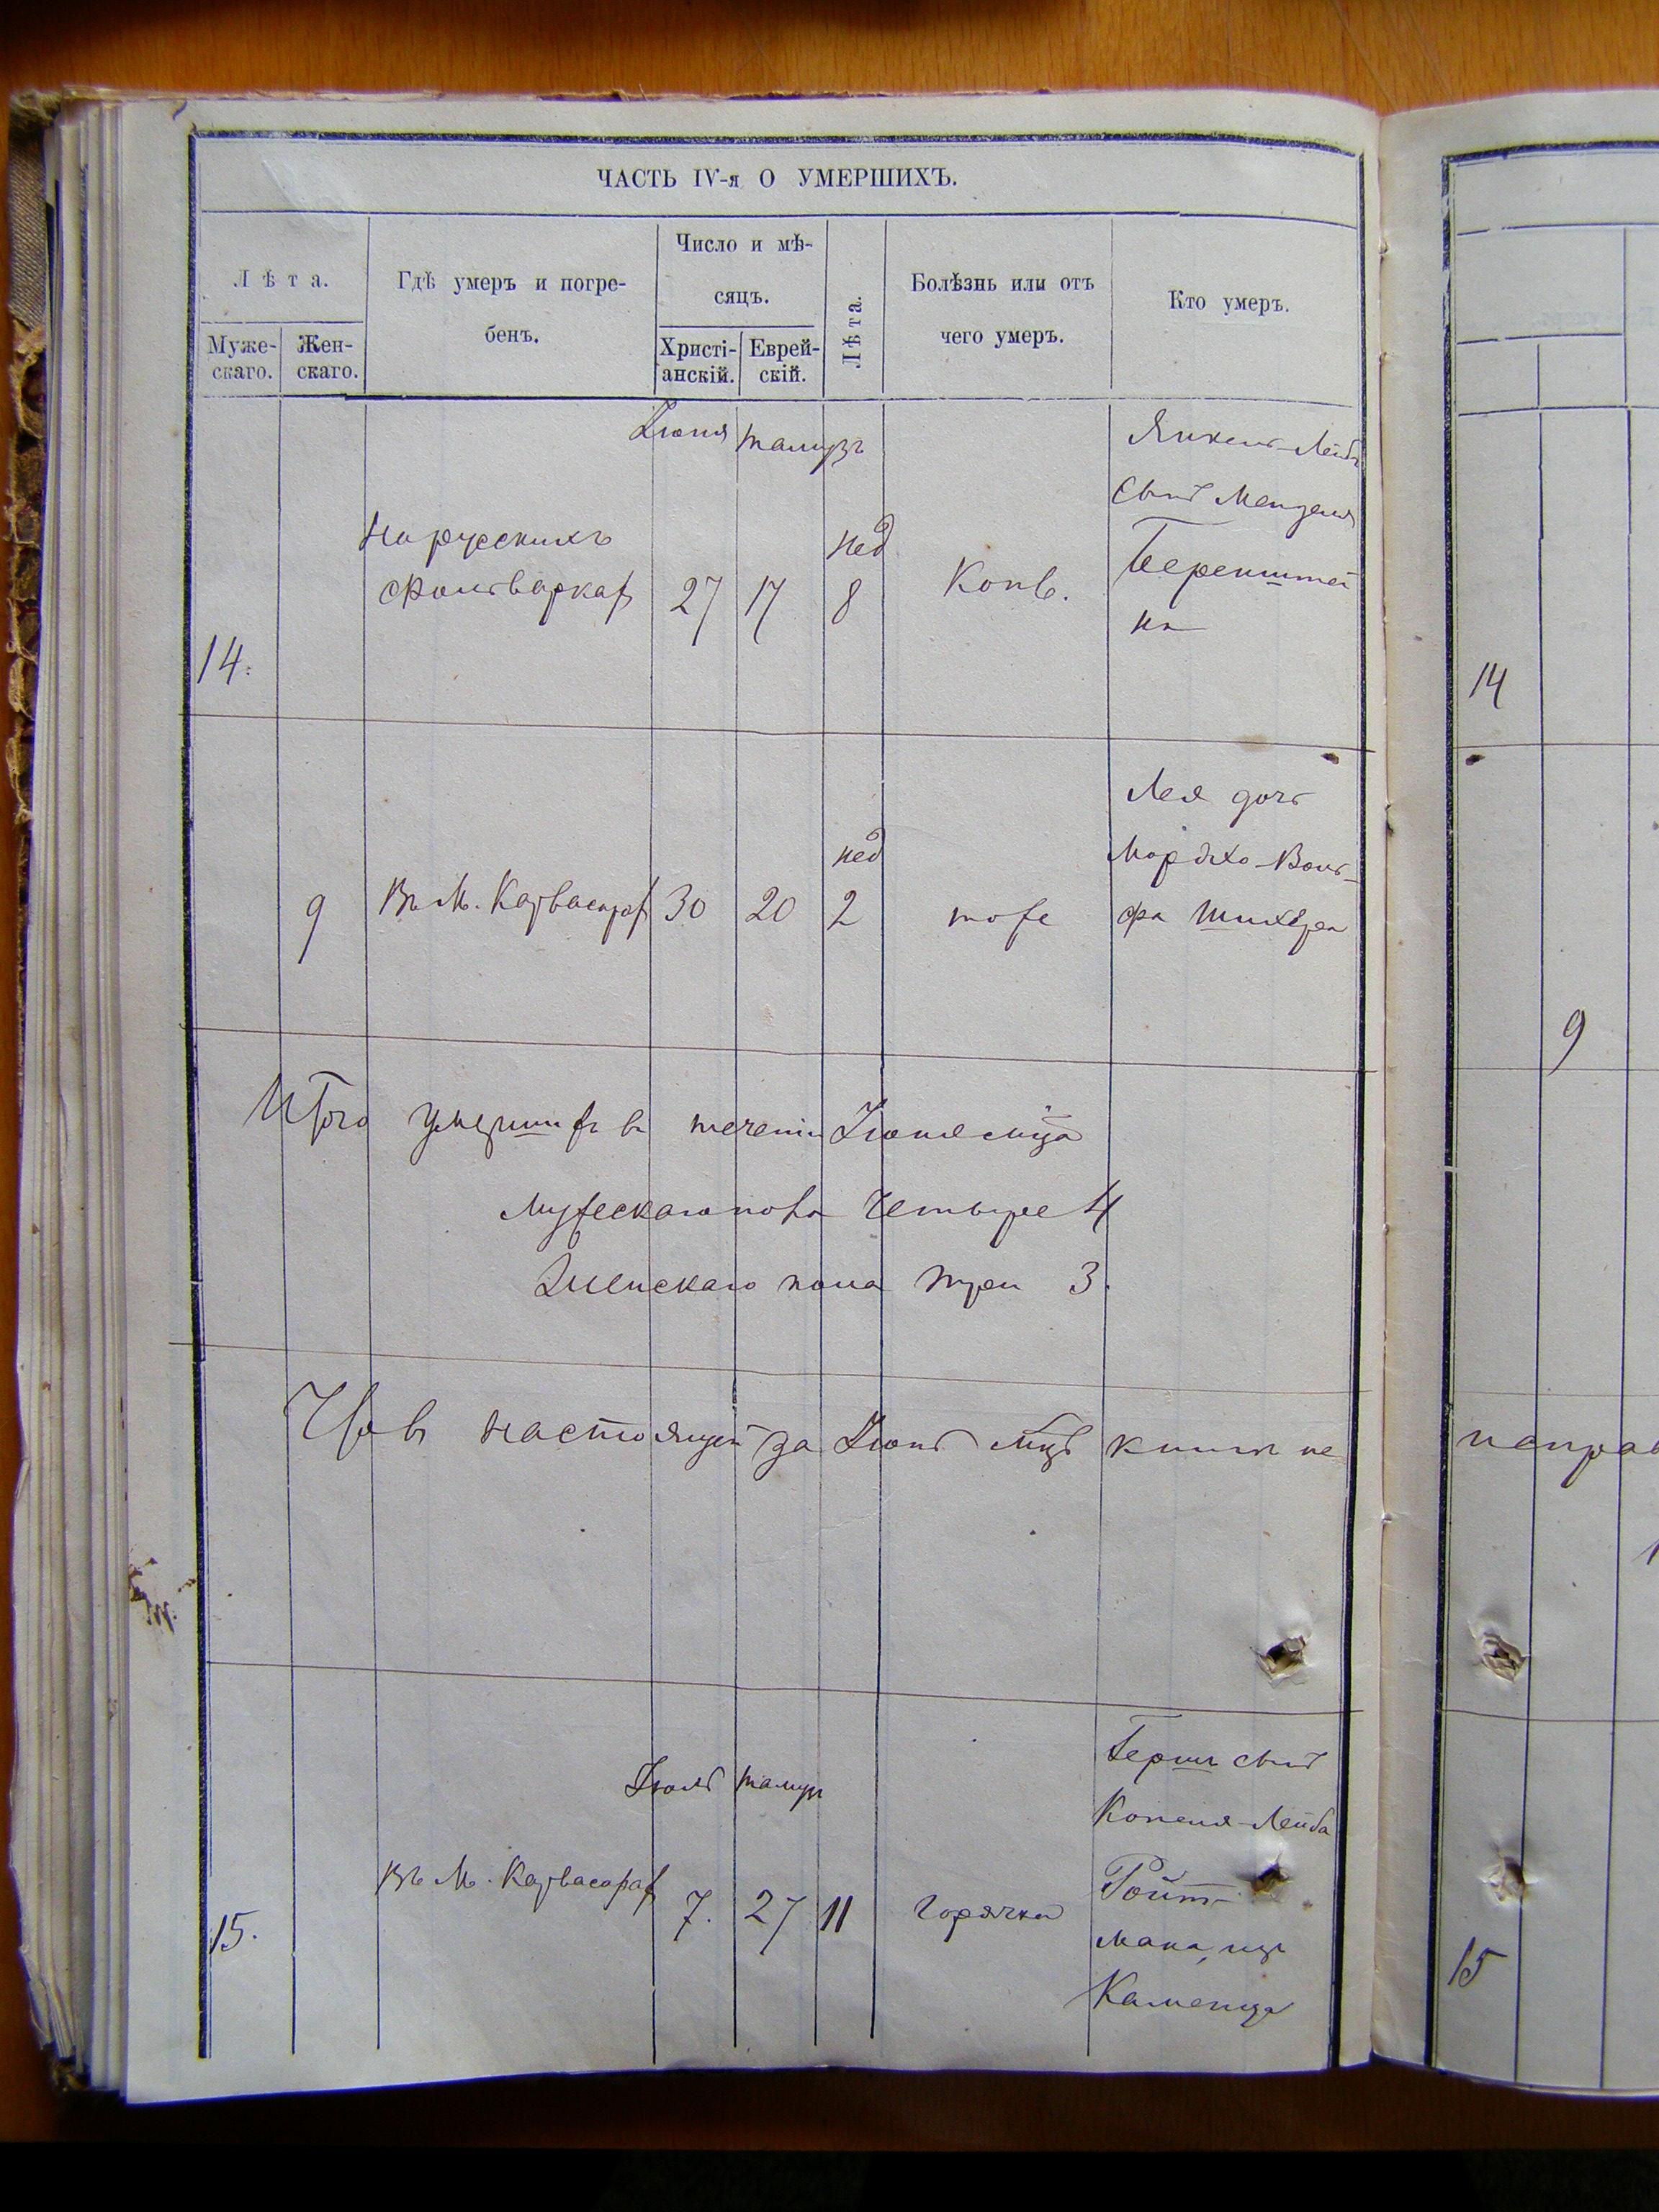 ЧАСТЬ IV-я О УМЕРШИХЪ.
Лѣта.
Муже-
скаго.
Жен-
скаго.
Гдѣ умеръ и погре-
бенъ.
Число и мѣ-
сяцъ.
Христі-
анскій.
Еврей-
скій.
Лѣта.
Болѣзнь или отъ
чего умеръ.
Кто умеръ.
Іюня тамузъ
14.
На русскихъ
фольварках
27 17
нед
8
Конв.
Янкель-Лейб
сынъ Менделя
Беренштей
на
9
Въ М. Карвасарах
30 20
нед
2
тоже
Лея дочь
Мордко-Воль-
фа
Итого умерших в течении Іюня мца
мужескаго пола четыре 4
Женскаго пола три 3.
Что в настоящей за Іюнь мцъ книги не
Іюль тамуз
15.
Въ М. Карвасарах
7. 27 11
горячка
Герш сынъ
Копеля-Лейба
Ройт-
мана, изъ
Каменца
14
9
неправ
15